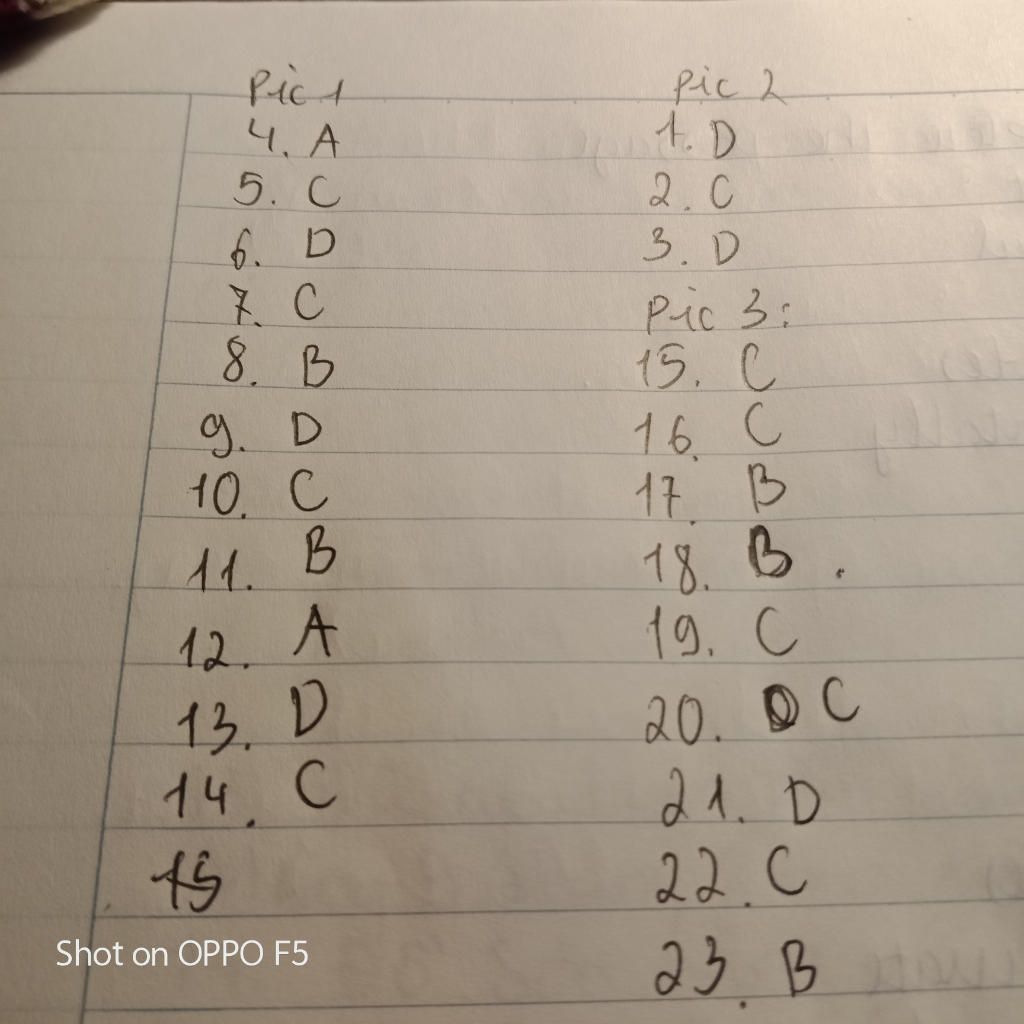 Pic 1
4. A
5. C
6. D
7. C
8. B
9. D
10. C
11. B
12. A
13. D
14. C
15
Pic 2
1. D
2. C
3. D
Pic 3:
15. C
16. C
17. B
18. B.
19. C
20. D C
21. D
22. C
23. B
Shot on OPPO F5